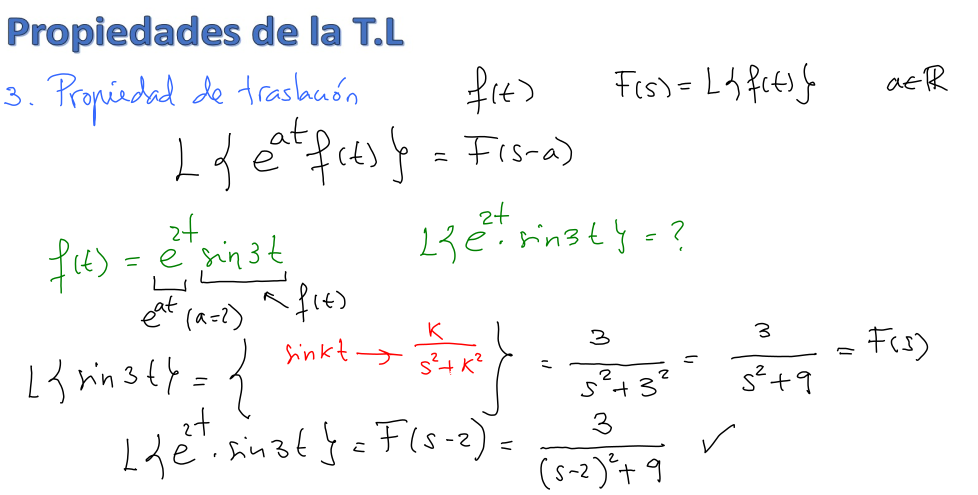 Propiedades de la T.L
3. Propiedad de traslación f(t) F(s) = L{f(t)} a∈ℝ
L{e^{at} f(t)} = F(s-a)
f(t) = e^{2t} sin3t L{e^{2t} · sin3t} = ?
e^{at} (a=2) ↖ f(t)
L{sin3t} = { sinkt → k/(s²+k²) } = 3/(s²+3²) = 3/(s²+9) = F(s)
L{e^{2t} · sin3t} = F(s-2) = 3/((s-2)²+9) ✓